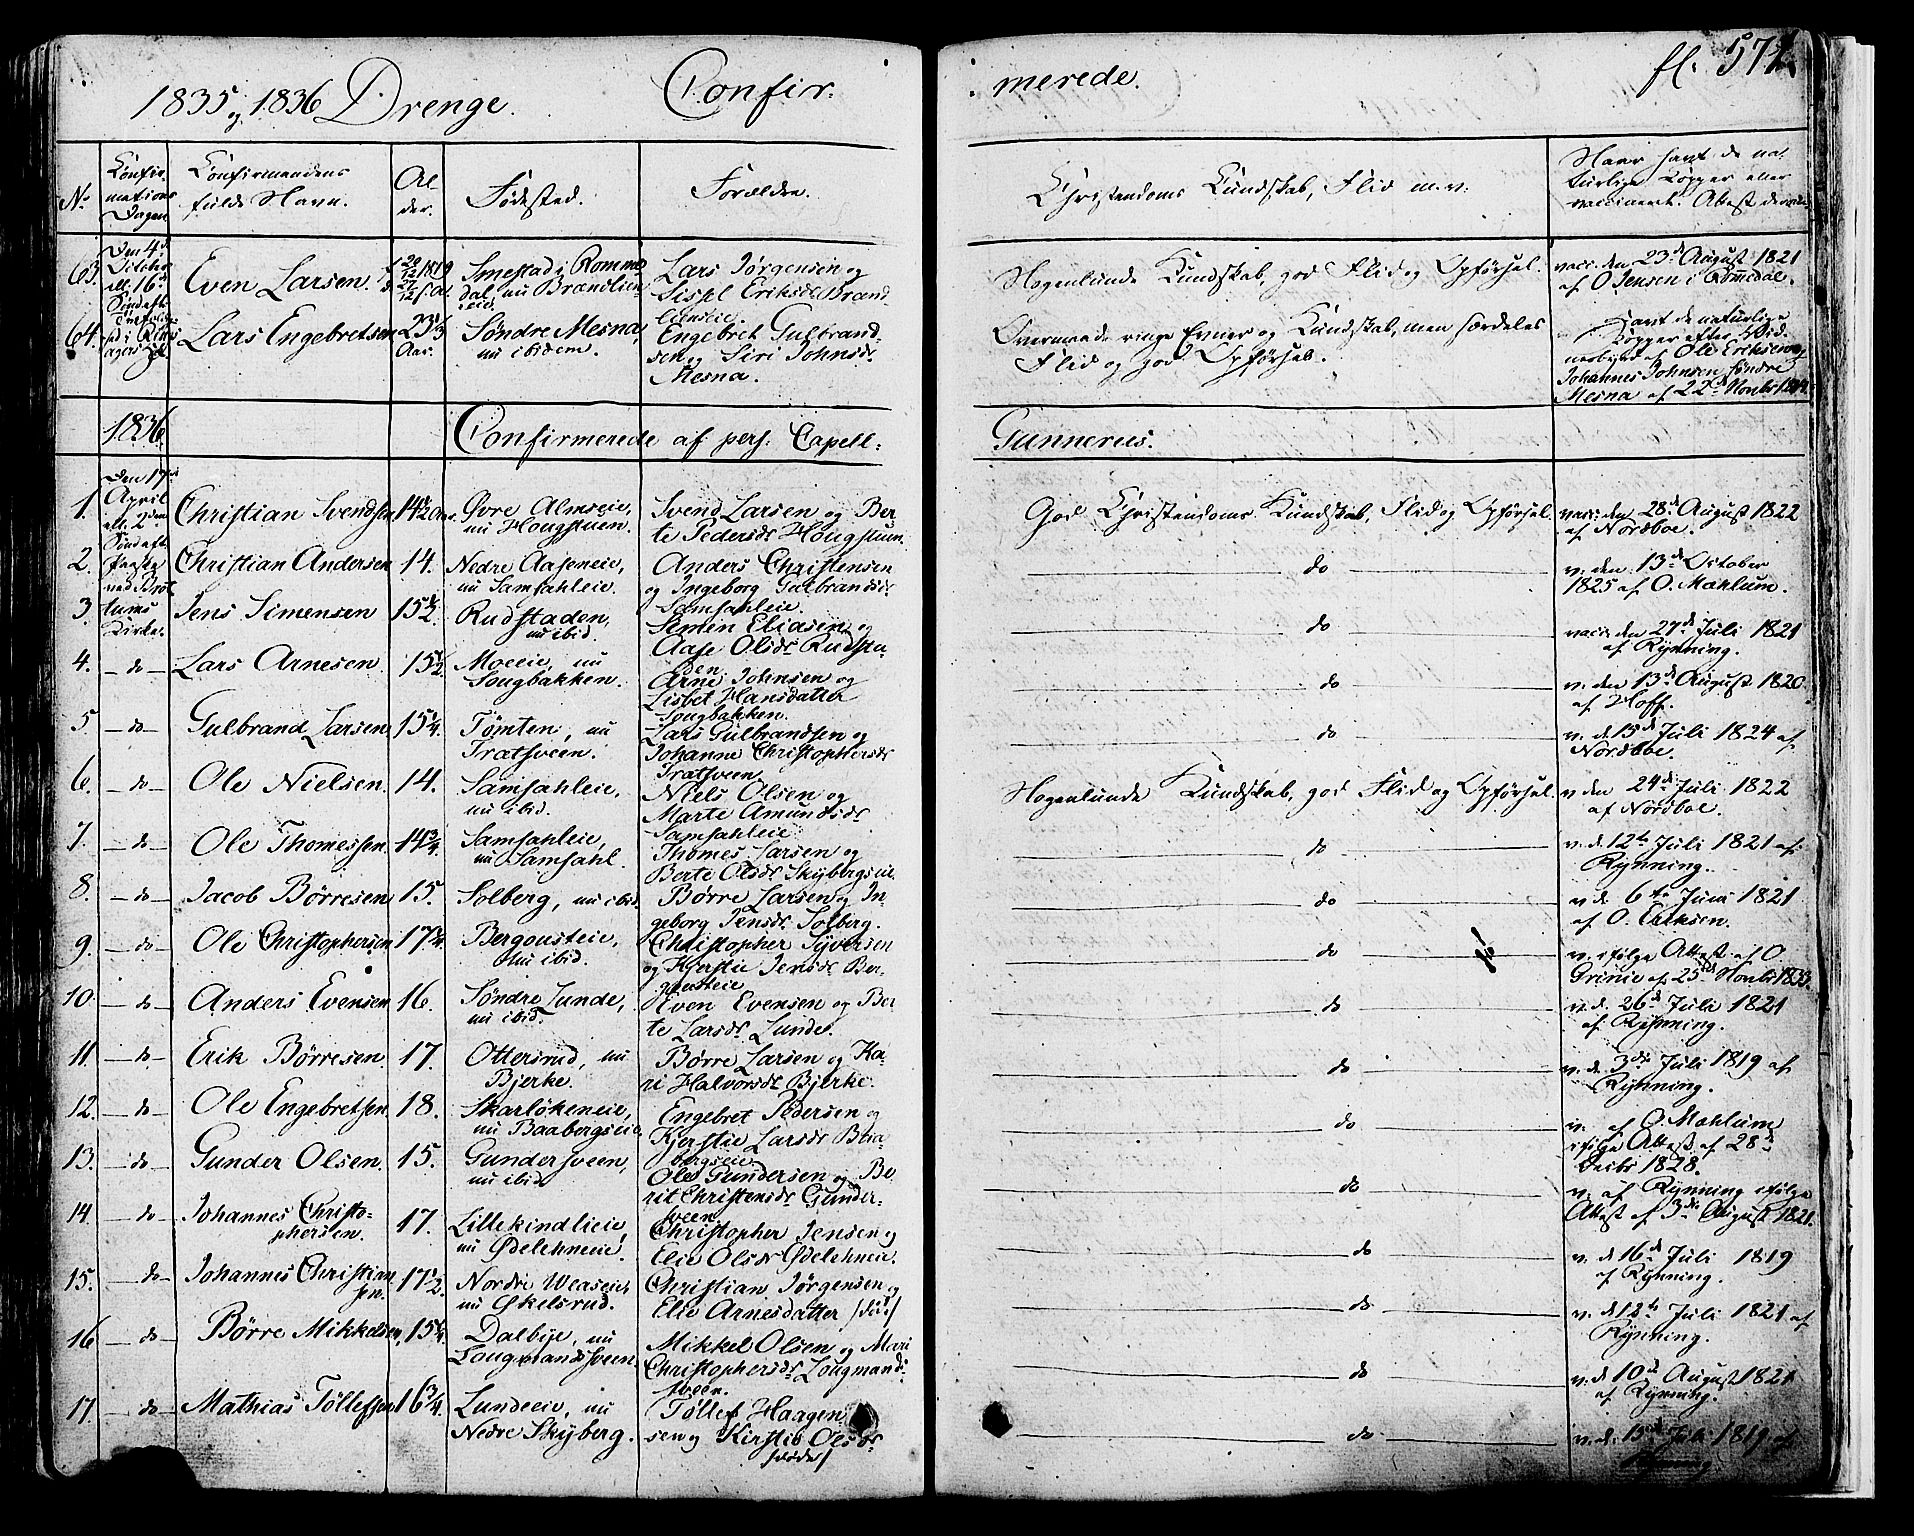 1835 og 1836 Drenge. Confir-
merede. fl. 571
No
Confir-
mations
Dagen
Confirmandens
fulde Navn.
Al-
der.
Fødested.
Forældre.
Christendoms Kundskab, Flid m.v.
Havt de na-
turlige Kopper eller
vaccineret. Attest derom
63.
Den 4de
Octobr
Even Larsen.
Smestad i Romme-
dal nu Brændlien-
eie
Lars Jørgensen og
Sissel Eriksdr Brænd-
lieneie
Nogenlunde Kundskab, god Flid og Opførsel.
vacc. den 23de August 1821
af O Jensen i Rommedal.
64.
Lars Engebretsen
23 1/3
Aar.
Søndre Mesna,
nu ibidem.
Engebret Gulbrand-
sen og Siri Johnsdr
Mesna.
Overmaade ringe Evner og Kundskab, men særdeles
Flid og god Opførsel.
Havt de naturlige
Kopper efter Vid-
nesbyrd af Ole Eriksen og
Johannes Johnsen søndre
Mesna af 22de Novbr
1836
Confirmerede af pers. Capell:
Gunnerus.
1.
Den 17de
April
Christian Svendsen
Øvre Almseie,
nu Hougstuen.
Svend Larsen og Ber-
te Pedersdr Hougstuen
God Christendoms Kundskab, Flid og Opførsel.
vacc. den 28de August 1822
af Nordboe.
2.
Christian Andersen
14.
Nedre Aaseneie,
nu Samsahleie.
Anders Christensen
og Ingeborg Gulbrandsdr
Samsahleie.
do
v. den 13de October
1825 af O. Mahlum.
3.
Jens Simensen
15 1/2.
Rudstaden,
nu ibid.
Simen Eliasen og
Aase Olsdr Rudsta-
den.
do
vacc. den 27de Juli 1821
af Rynning.
4.
do
Lars Arnesen
15 1/2
Moeeie, nu
Sougbakken.
Arne Johnsen og
Lisbet Hansdatter
Sougbakken.
do
v. den 13de August 1820
af Hoff.
5
do
Gulbrand Larsen
15 1/4
Tømten, nu
Trætsveen.
Lars Gulbrandsen og
Johanne Christophersdr
Trætsveen
do
v. d. 15de Juli 1824 af
Nordboe.
6.
do
Ole Nielsen
14.
Samsahleie,
nu ibid.
Niels Olsen og
Marte Amundsdr
Samsahleie
Nogenlunde Kundskab, god Flid og Opførsel.
v den 24de Juli 1822
af Nordboe.
7.
do
Ole Thomessen.
14 3/4.
Samsahleie,
nu Samsahl.
Thomes Larsen og
Berte Olsdr Skybergseie
do
v. d. 12te Juli 1821 af
Rynning.
8.
do
Jacob Børresen
15.
Solberg, nu ibid.
Børre Larsen og In-
geborg Jensdr Solberg.
do
v. d. 6te Juni 1821
af O. Eriksen.
9.
do
Ole Christophersen
Bergousteie,
nu ibid.
Christopher Syversen
og Kjerstie Jensdr Ber-
gousteie
do
v. ifølge Attest af O.
Grinie af 25de Novbr 1835.
10.
do
Anders Evensen
16.
Søndre Lunde,
nu ibid.
Even Evensen og Ber-
te Larsdr Lunde.
do
v. d. 26de Juli 1821
af Rynning.
11.
do
Erik Børresen
17.
Ottersrud, nu
Bjerke.
Børre Larsen og Ka-
ri Halvorsdr Bjerke.
do
v. d. 3die Juli 1819 af
Rynning.
12.
do
Ole Engebretsen
18.
Skarløkeneie,
nu Baabergseie.
Engebret Pedersen og
Kjerstie Larsdr Baa-
bergseie.
do
v. af O. Mahlum
ifølge Attest af 28de
Decbr 1828.
13.
do
Gunder Olsen.
15.
Gundersveen,
nu ibid
Ole Gundersen og Be-
rit Christensdr Gunder-
sveen
do
v. af Rynning ifølge
Attest af 3die August 1821.
14.
do
Johannes Christo-
phersen.
17.
Lillekindlieie,
nu Ødelehneie.
Christopher Jensen og
Elie Olsdr Ødelehneie.
do
v. d. 16de Juli 1819
af Rynning.
15.
do
Johannes Christian-
sen.
17 1/2
Nordre Weaseie,
nu Økelsrud.
Christian Jørgensen og
Elie Arnesdatter /død/
do
v. d. 12te Juli 1821 af
Rynning.
16
do
Børre Mikkelsen
15 1/4.
Dalbye, nu
Lougmandsveen.
Mikkel Olsen og Mari
Christophersdr Lougmand-
sveen.
do
v. d. 10de August 1821
af Rynning.
17.
do
Mathias Tøllefsen
16 3/4.
Lundeeie, nu
Nedre Skyberg.
Tøllef Haagen-
sen og Kirstie Olsdr
/døde/
do
v. d. 15de Juli 1819 af
Rynning